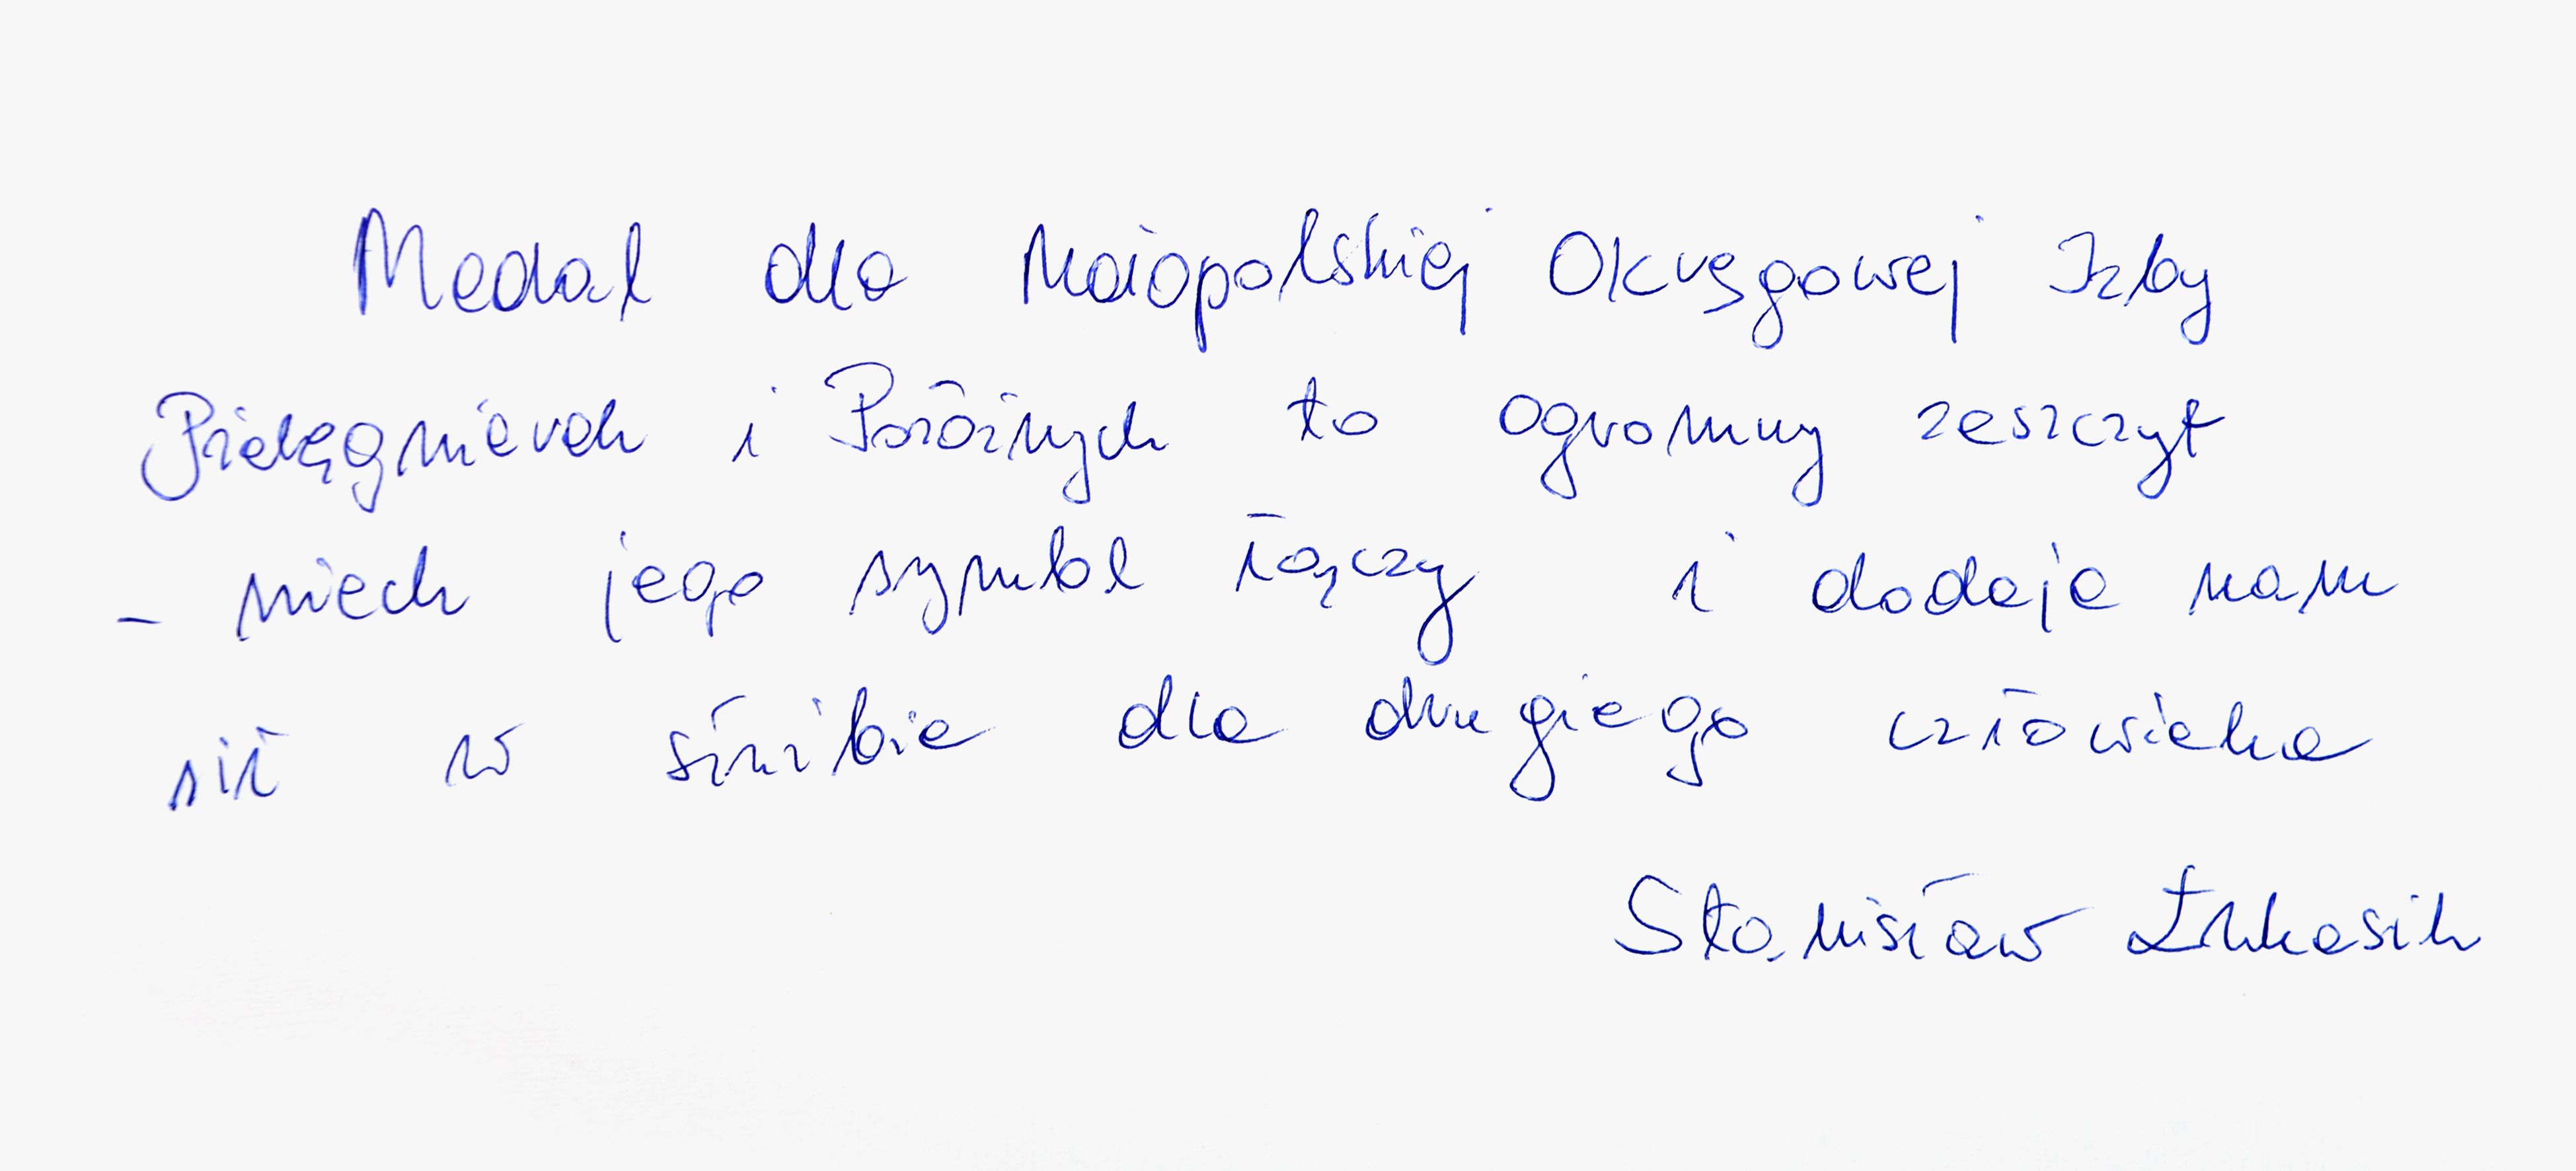 Medal dla Małopolskiej Okręgowej Izby
Pielęgniarek i Położnych to ogromny zaszczyt
– niech jego symbol łączy i dodaje nam
sił w służbie dla drugiego człowieka
Stanisław Łukasik